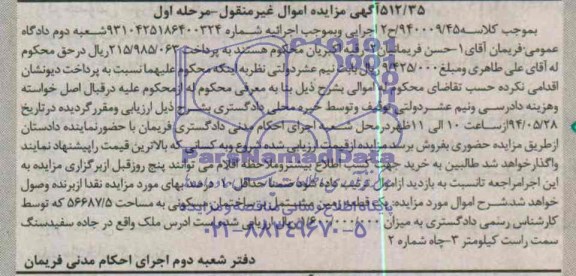 ۵۱۲/۳۵آگهی مزایده اموال غیرمنقول-مرحله اول
بموجب کلاسه۹۴۰۰۰۹/۴۵ح۲ اجرایی وبموجب اجرائیه شماره ۹۳۱۰۴۲۵۱۸۶۴۰۰۳۲۴شعبه دوم دادگاه
عمومی-فریمان آقای۱-حسن فریمانیان ۲- محکوم هستند به پرداخت ۲۱۵/۹۸۵/۰۶۳ریال درحق محکوم
له آقای علی طاهری ومبلغ ۹/۴۲۵/۰۰۰ریال بابت نیم عشردولتی نظربه اینکه محکوم علیهما نسبت به پرداخت دیونشان
اقدامی نکرده حسب تقاضای محکوم له اموالی بشرح ذیل بنا به معرفی محکوم له ازمحکوم علیه درقبال اصل خواسته
وهزینه دادرسی ونیم عشردولتی توقیف وتوسط خبره محلی دادگستری بشرح ذیل ارزیابی ومقررگردیده درتاریخ
۹۴/۰۵/۲۸ ازساعت ۱۰ الی ۱۱ظهردرمحل شعبه اجرای احکام مدنی دادگستری فریمان با حضورنماینده دادستان
ازطریق مزایده حضوری بفروش برسد مزایده ازقیمت ارزیابی شده شروع وبه کسانی که بالاترین قیمت راپیشنهاد نمایند
واگذارخواهد شد طالبین به خرید جهت کسب اطلاع بیشتروملاحظه اقلام می توانند پنج روزقبل ازبرگزاری مزایده به
این اجرامراجعه تانسبت به بازدید ازاموال ترتیب داده شود ضمنا حداقل ۱۰درصدبهای مورد مزایده نقدا ازبرنده وصول
خواهد شدشرح اموال مورد مزایده: یک قطعه زمین مشتمل بر ساختمان مسکونی به مساحت ۵۶۶۸۷/۵
کارشناس رسمی دادگستری به میزان ریال ارزیابی شده است ادرس ملک واقع در جاده سفیدسنگ
سمت راست کیلومتر ۳-چاه شماره ۲
دفتر شعبه دوم اجرای احکام مدنی فریمان
ParsNamadData
۰۲۱-۸۸۳۴۹۶۷۰-۵